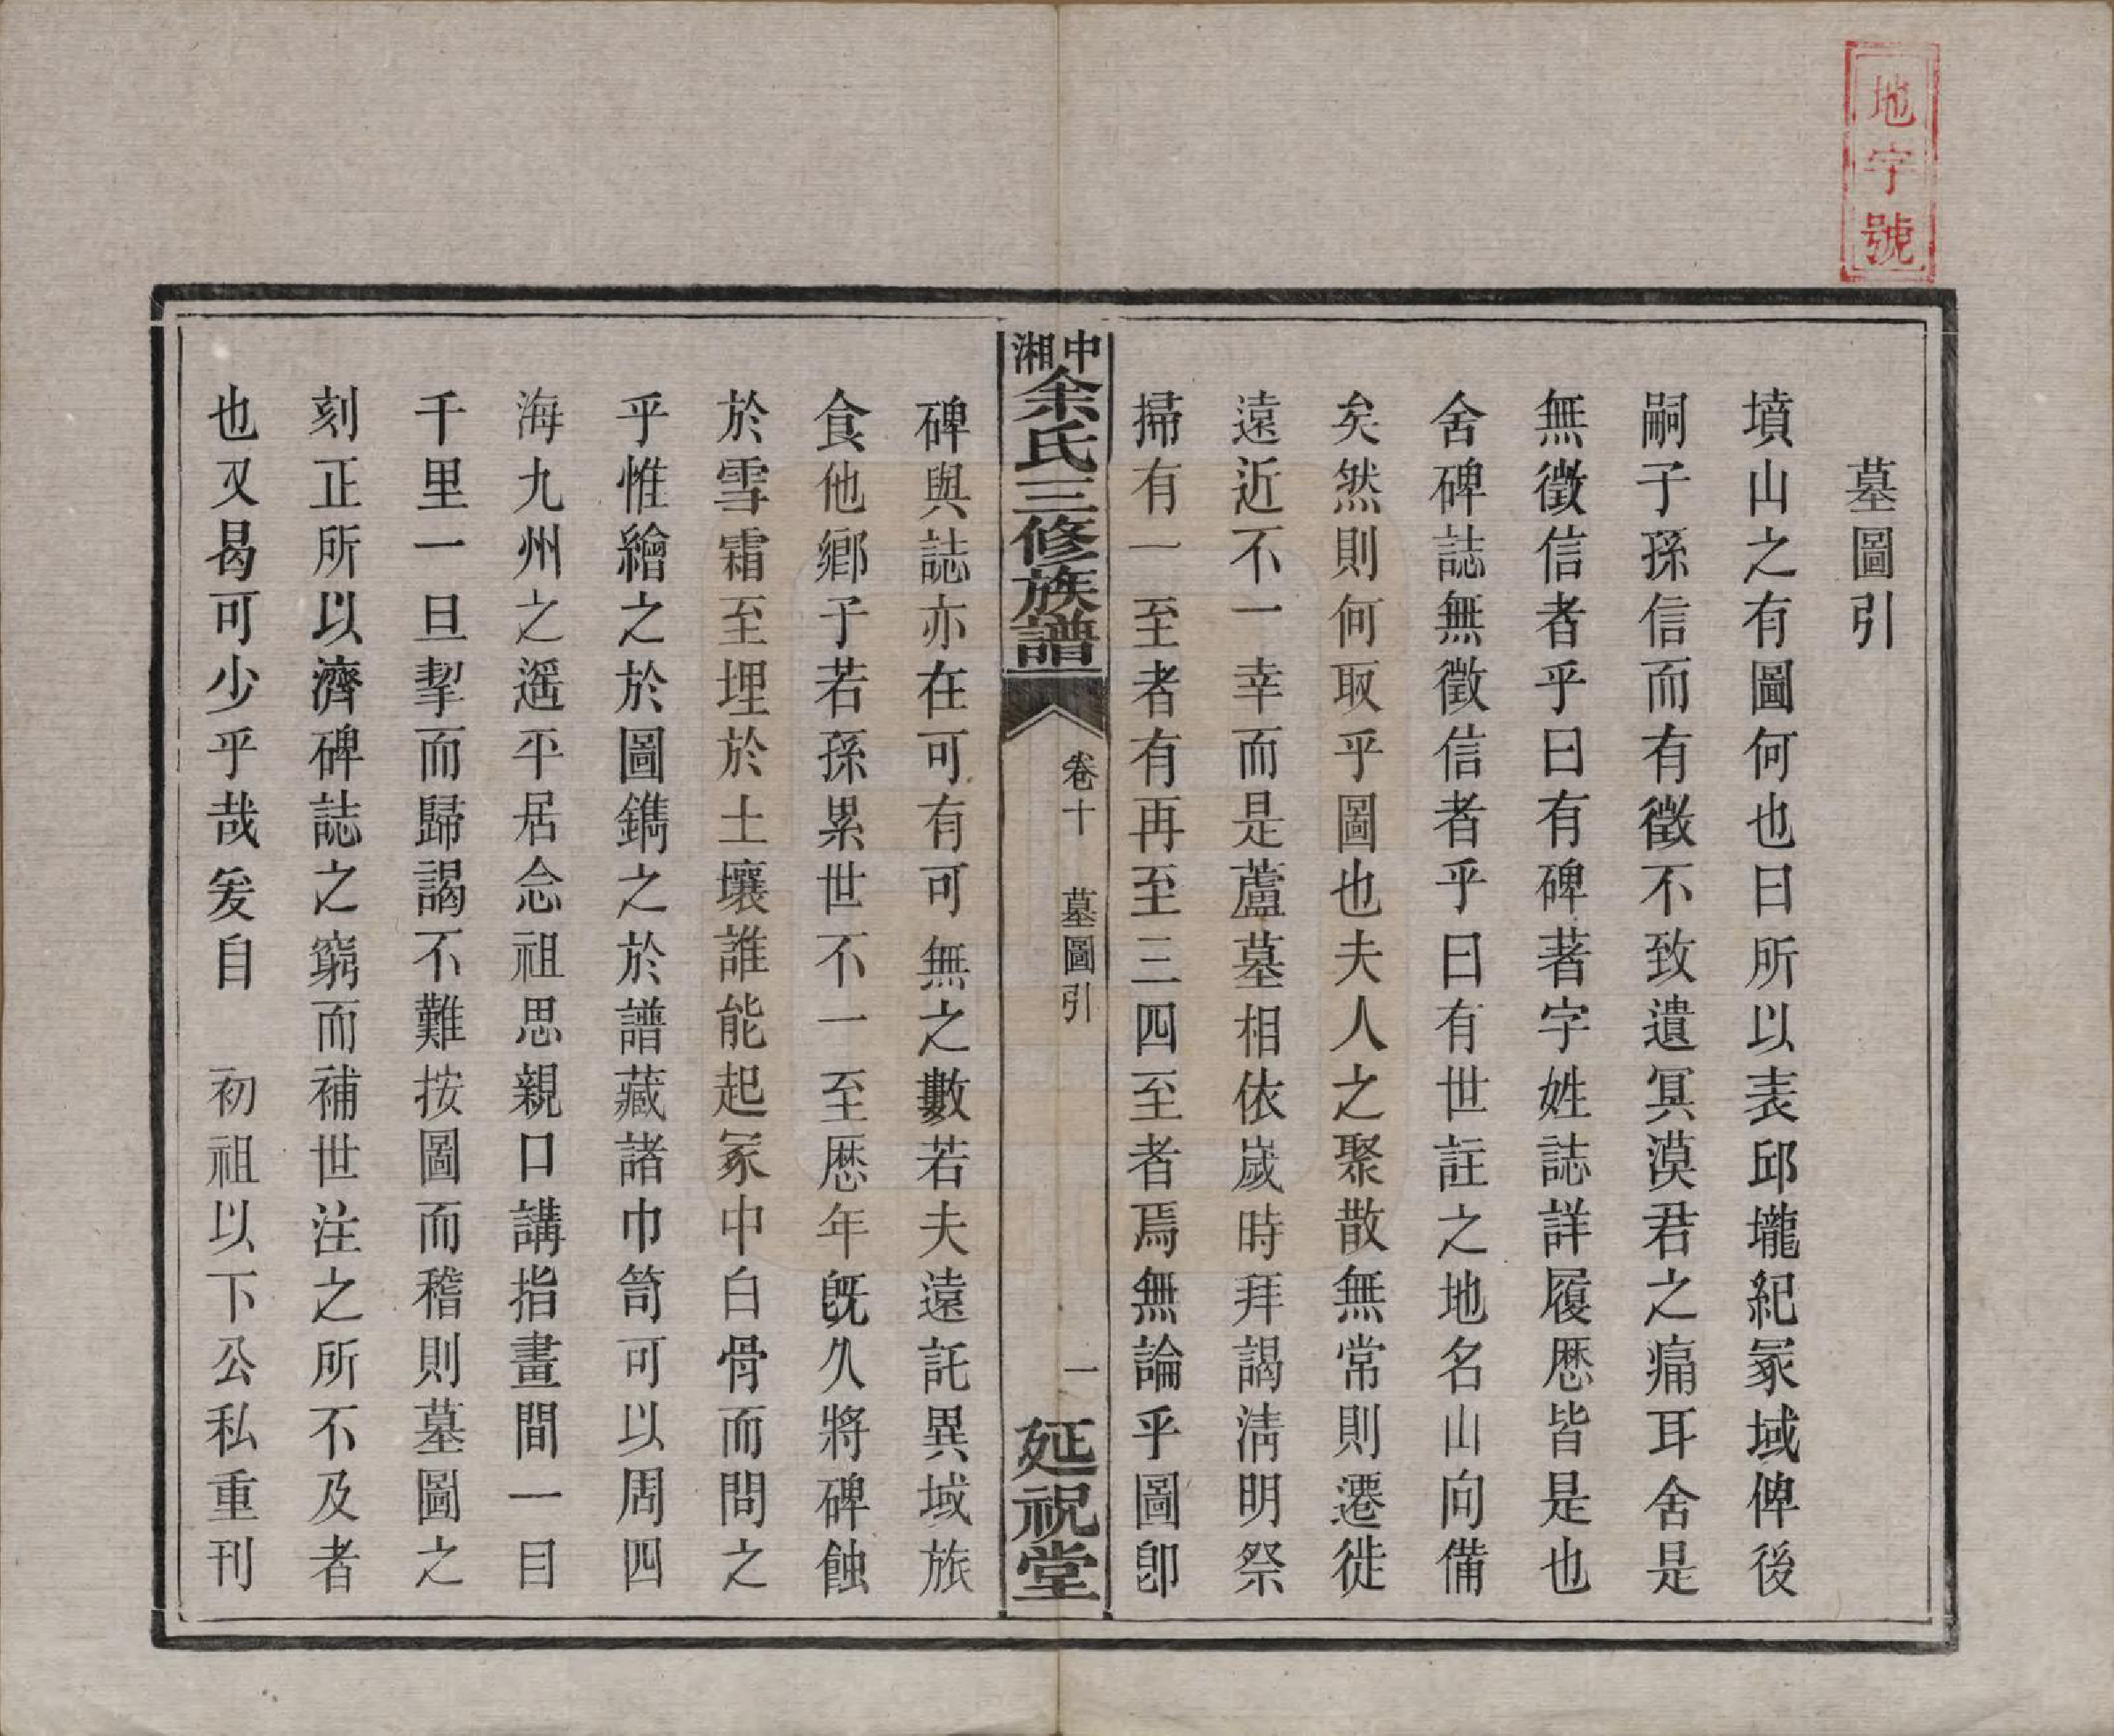 地字號
墓圖引
墳山之有圖何也曰所以表邱壠紀冢域俾後
嗣子孫信而有徵不致遺冥漠君之痛耳舍是
無徵信者乎曰有碑著字姓誌詳履厯皆是也
舍碑誌無徵信者乎曰有世註之地名山向備
矣然則何取乎圖也夫人之聚散無常則遷徙
遠近不一幸而是蘆墓相依歲時拜謁淸明祭
掃有一至者有再至三四至者焉無論乎圖卽
中湘余氏三修族譜
卷十 墓圖引
一
延祝堂
碑與誌亦在可有可無之數若夫遠託異域旅
食他鄉子若孫累世不一至厯年旣久將碑蝕
於雪霜至埋於土壤誰能起冢中白骨而問之
乎惟繪之於圖鐫之於譜藏諸巾笥可以周四
海九州之遥平居念祖思親口講指畫間一目
千里一旦挈而歸謁不難按圖而稽則墓圖之
刻正所以濟碑誌之窮而補世注之所不及者
也又曷可少乎哉爰自 初祖以下公私重刊